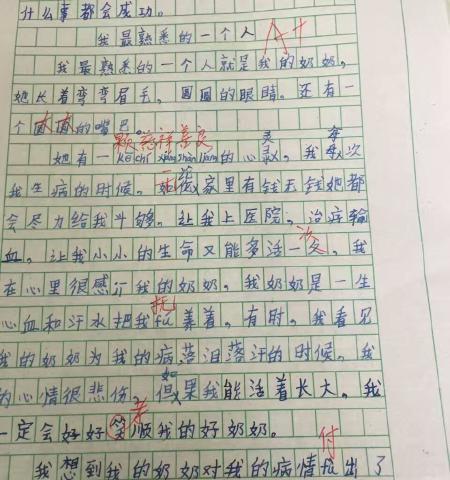 什么事都会成功。
我最熟悉的一个人 A+
我最熟悉的一个人就是我的奶奶,
她长着弯弯眉毛,圆圆的眼睛。还有一
个圆圆的嘴巴。
颗慈祥善良 灵 每
她有一 ke ci xiang shan liang 的心录。我每次
我生病的时候。家里有钱无钱她都
会尽力给我斗够。让我上医院,治病输
血。让我小小的生命又能多活一次。我
在心里很感亓我的奶奶。我奶奶是一生
抚
心血和汗水把我fu养着。有时。我看见
我的奶奶为我的病落泪落汗的时候。我
如
的心情很悲伤。但果我能活着长大。我
孝
一定会好好笑顺我的好奶奶。
付
我想到我的奶奶对我的病情fu出了